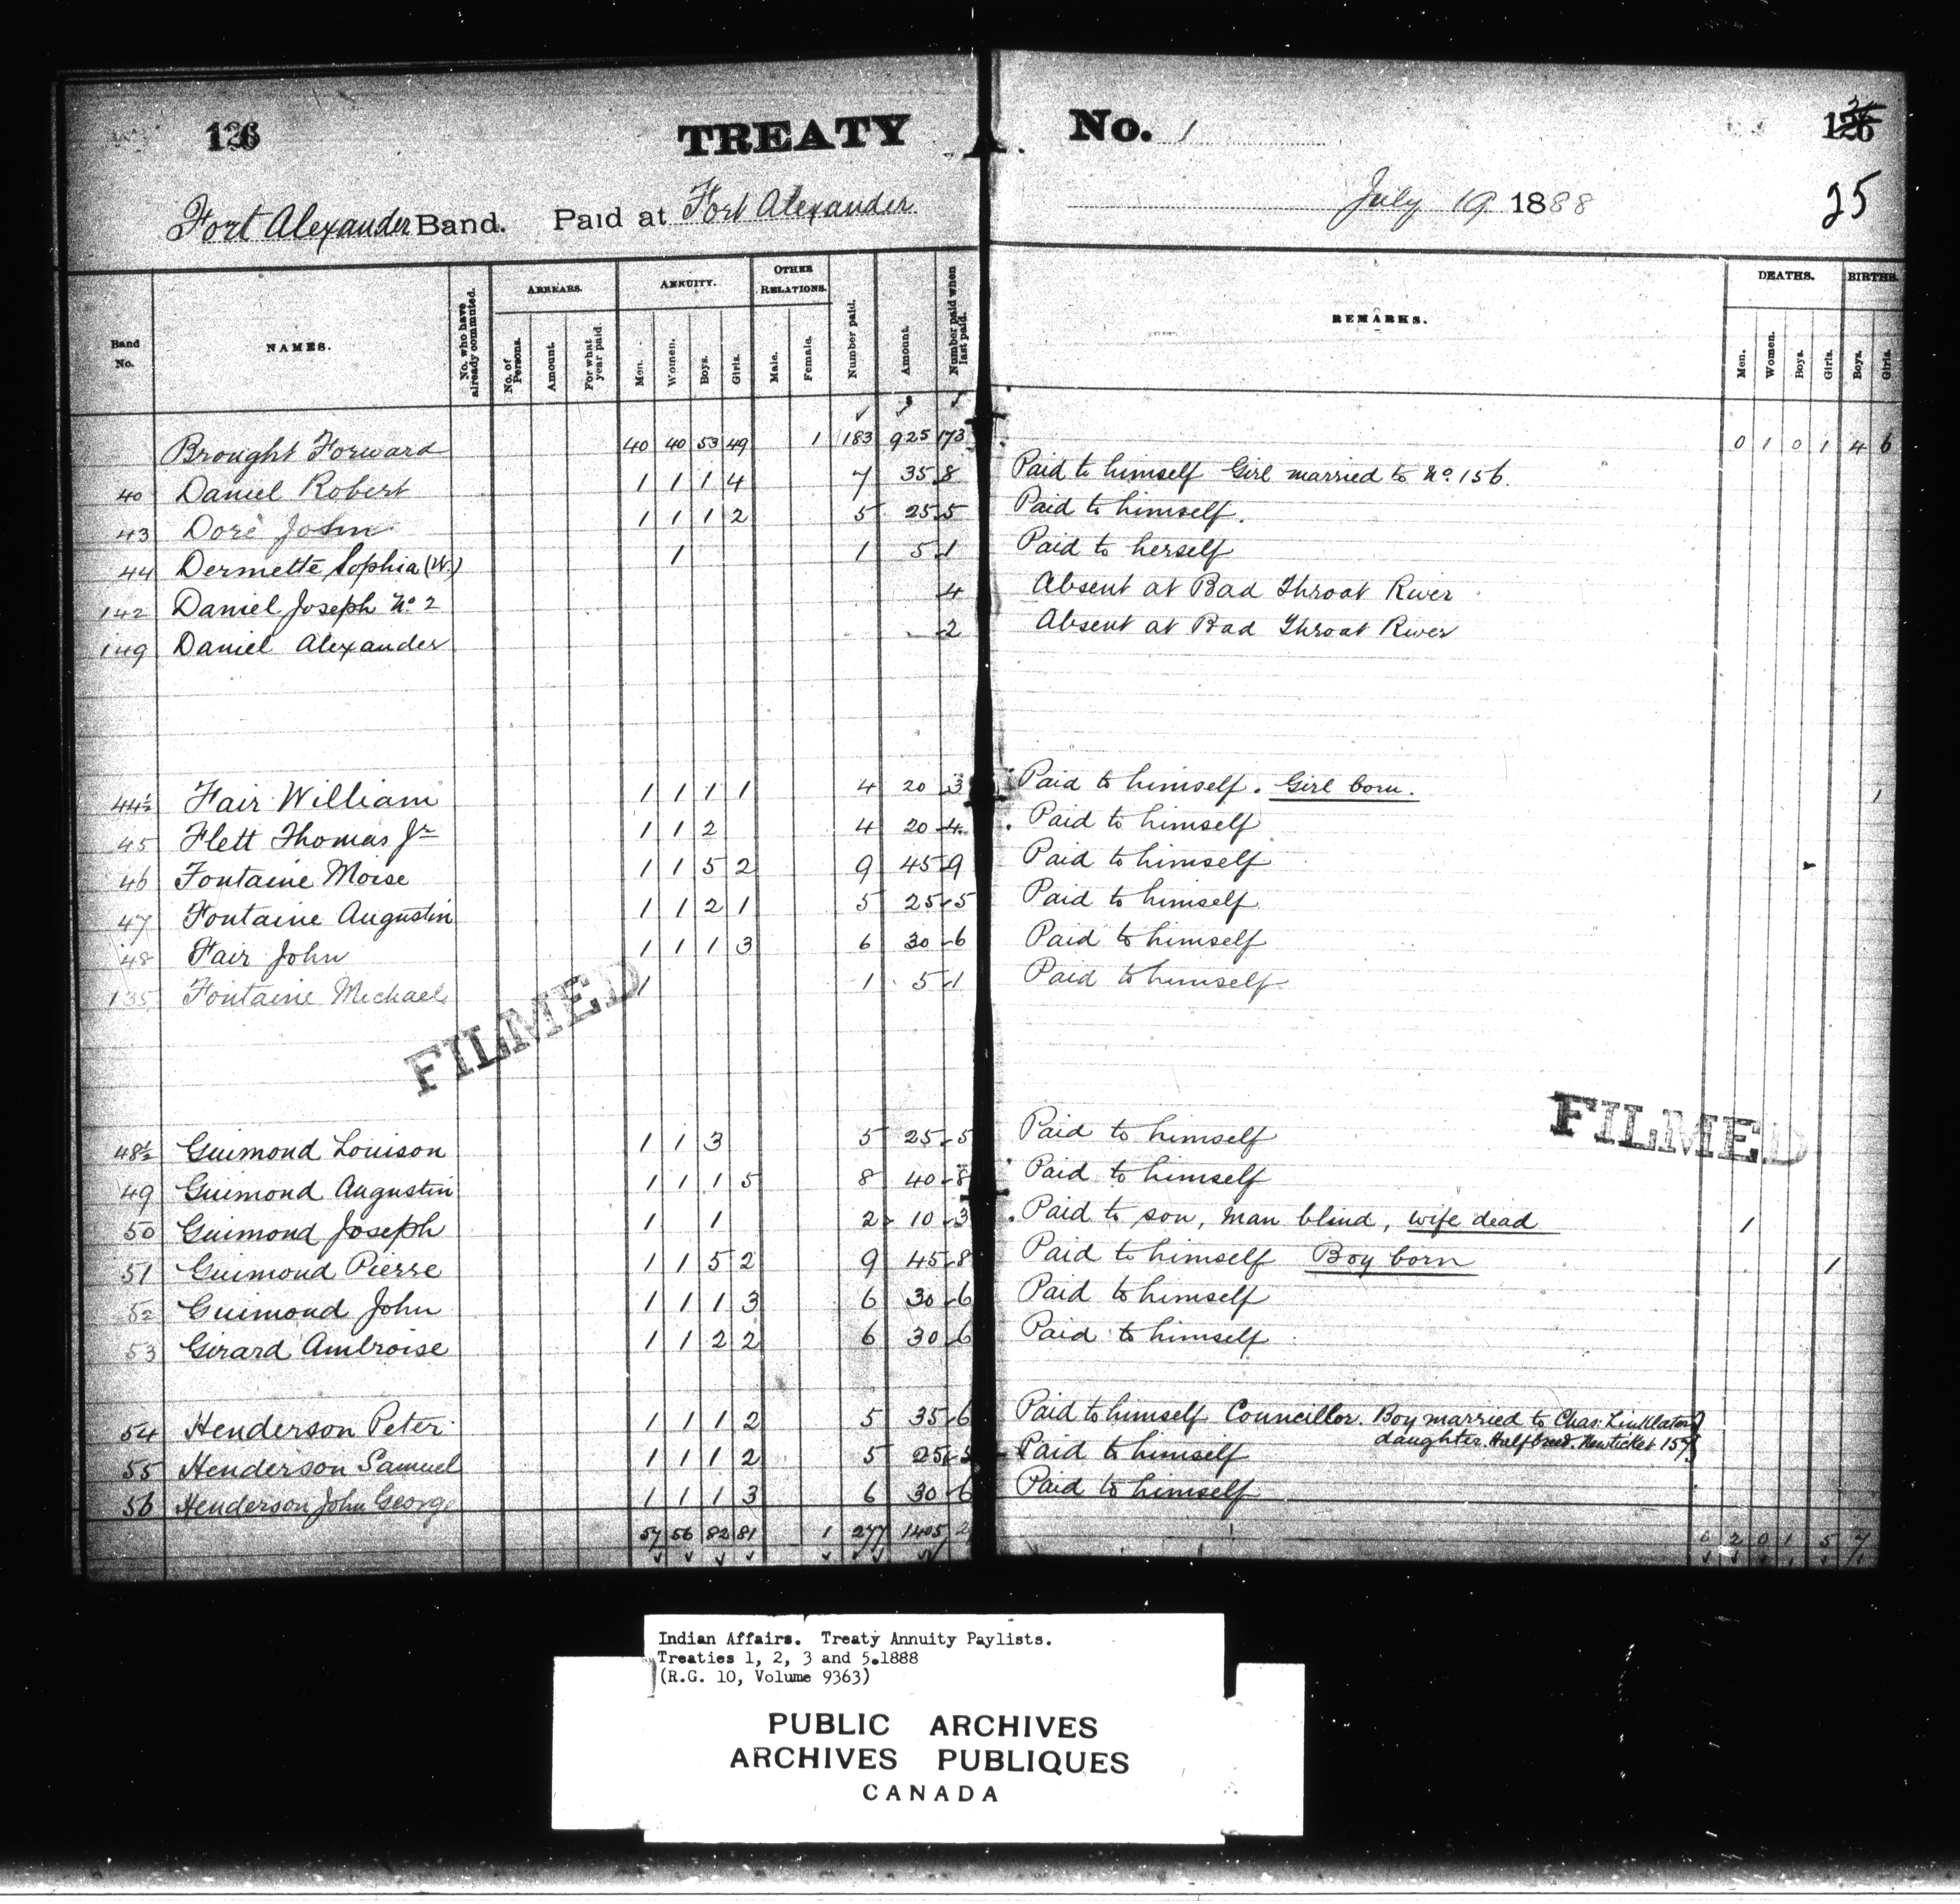 126
TREATY No. 1
126
25
Fort Alexander Band. Paid at Fort Alexander July 19 1888
Band No. NAMES. No. who have already commuted. ARREARS. No. of Persons. Amount. For what year paid. ANNUITY. Men. Women. Boys. Girls. OTHER RELATIONS. Male. Female. Number paid. Amount. Number paid when last paid. REMARKS. DEATHS. Men. Women. Boys. Girls. BIRTHS. Boys. Girls.
Brought Forward 40 40 53 49 1 183 925 173 0 1 0 1 4 6
40 Daniel Robert 1 1 1 4 7 35 8 Paid to himself Girl married to No. 156.
43 Doré John 1 1 1 2 5 25 5 Paid to himself.
44 Dermette Sophia (W.) 1 1 5 1 Paid to herself
142 Daniel Joseph No 2 4 Absent at Bad Throat River
149 Daniel Alexander 2 Absent at Bad Throat River
44½ Fair William 1 1 1 1 4 20 3 Paid to himself. Girl born. 1
45 Flett Thomas Jr 1 1 2 4 20 4 Paid to himself
46 Fontaine Moise 1 1 5 2 9 45 9 Paid to himself
47 Fontaine Augustin 1 1 2 1 5 25 5 Paid to himself
48 Fair John 1 1 1 3 6 30 6 Paid to himself
135 Fontaine Michael 1 1 5 1 Paid to himself
FILMED
FILMED
48½ Guimond Louison 1 1 3 5 25 5 Paid to himself
49 Guimond Augustin 1 1 1 5 8 40 8 Paid to himself
50 Guimond Joseph 1 1 2 10 3 Paid to son, man blind, wife dead 1
51 Guimond Pierre 1 1 5 2 9 45 8 Paid to himself Boy born 1
52 Guimond John 1 1 1 3 6 30 6 Paid to himself
53 Girard Ambroise 1 1 2 2 6 30 6 Paid to himself
54 Henderson Peter 1 1 1 2 5 35 6 Paid to himself Councillor. Boy married to Chas. Linklater
daughter. Halfbreed. New ticket 157
55 Henderson Samuel 1 1 1 2 5 25 5 Paid to himself
56 Henderson John George 1 1 1 3 6 30 6 Paid to himself
57 56 82 81 1 277 1405 2 0 2 0 1 5 7
Indian Affairs. Treaty Annuity Paylists.
Treaties 1, 2, 3 and 5.1888
(R.G. 10, Volume 9363)
PUBLIC ARCHIVES
ARCHIVES PUBLIQUES
CANADA